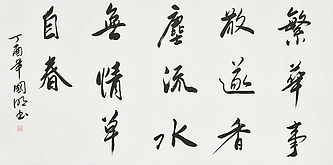 繁華事
散逐香
塵流水
無情草
自春
丁酉年國明书